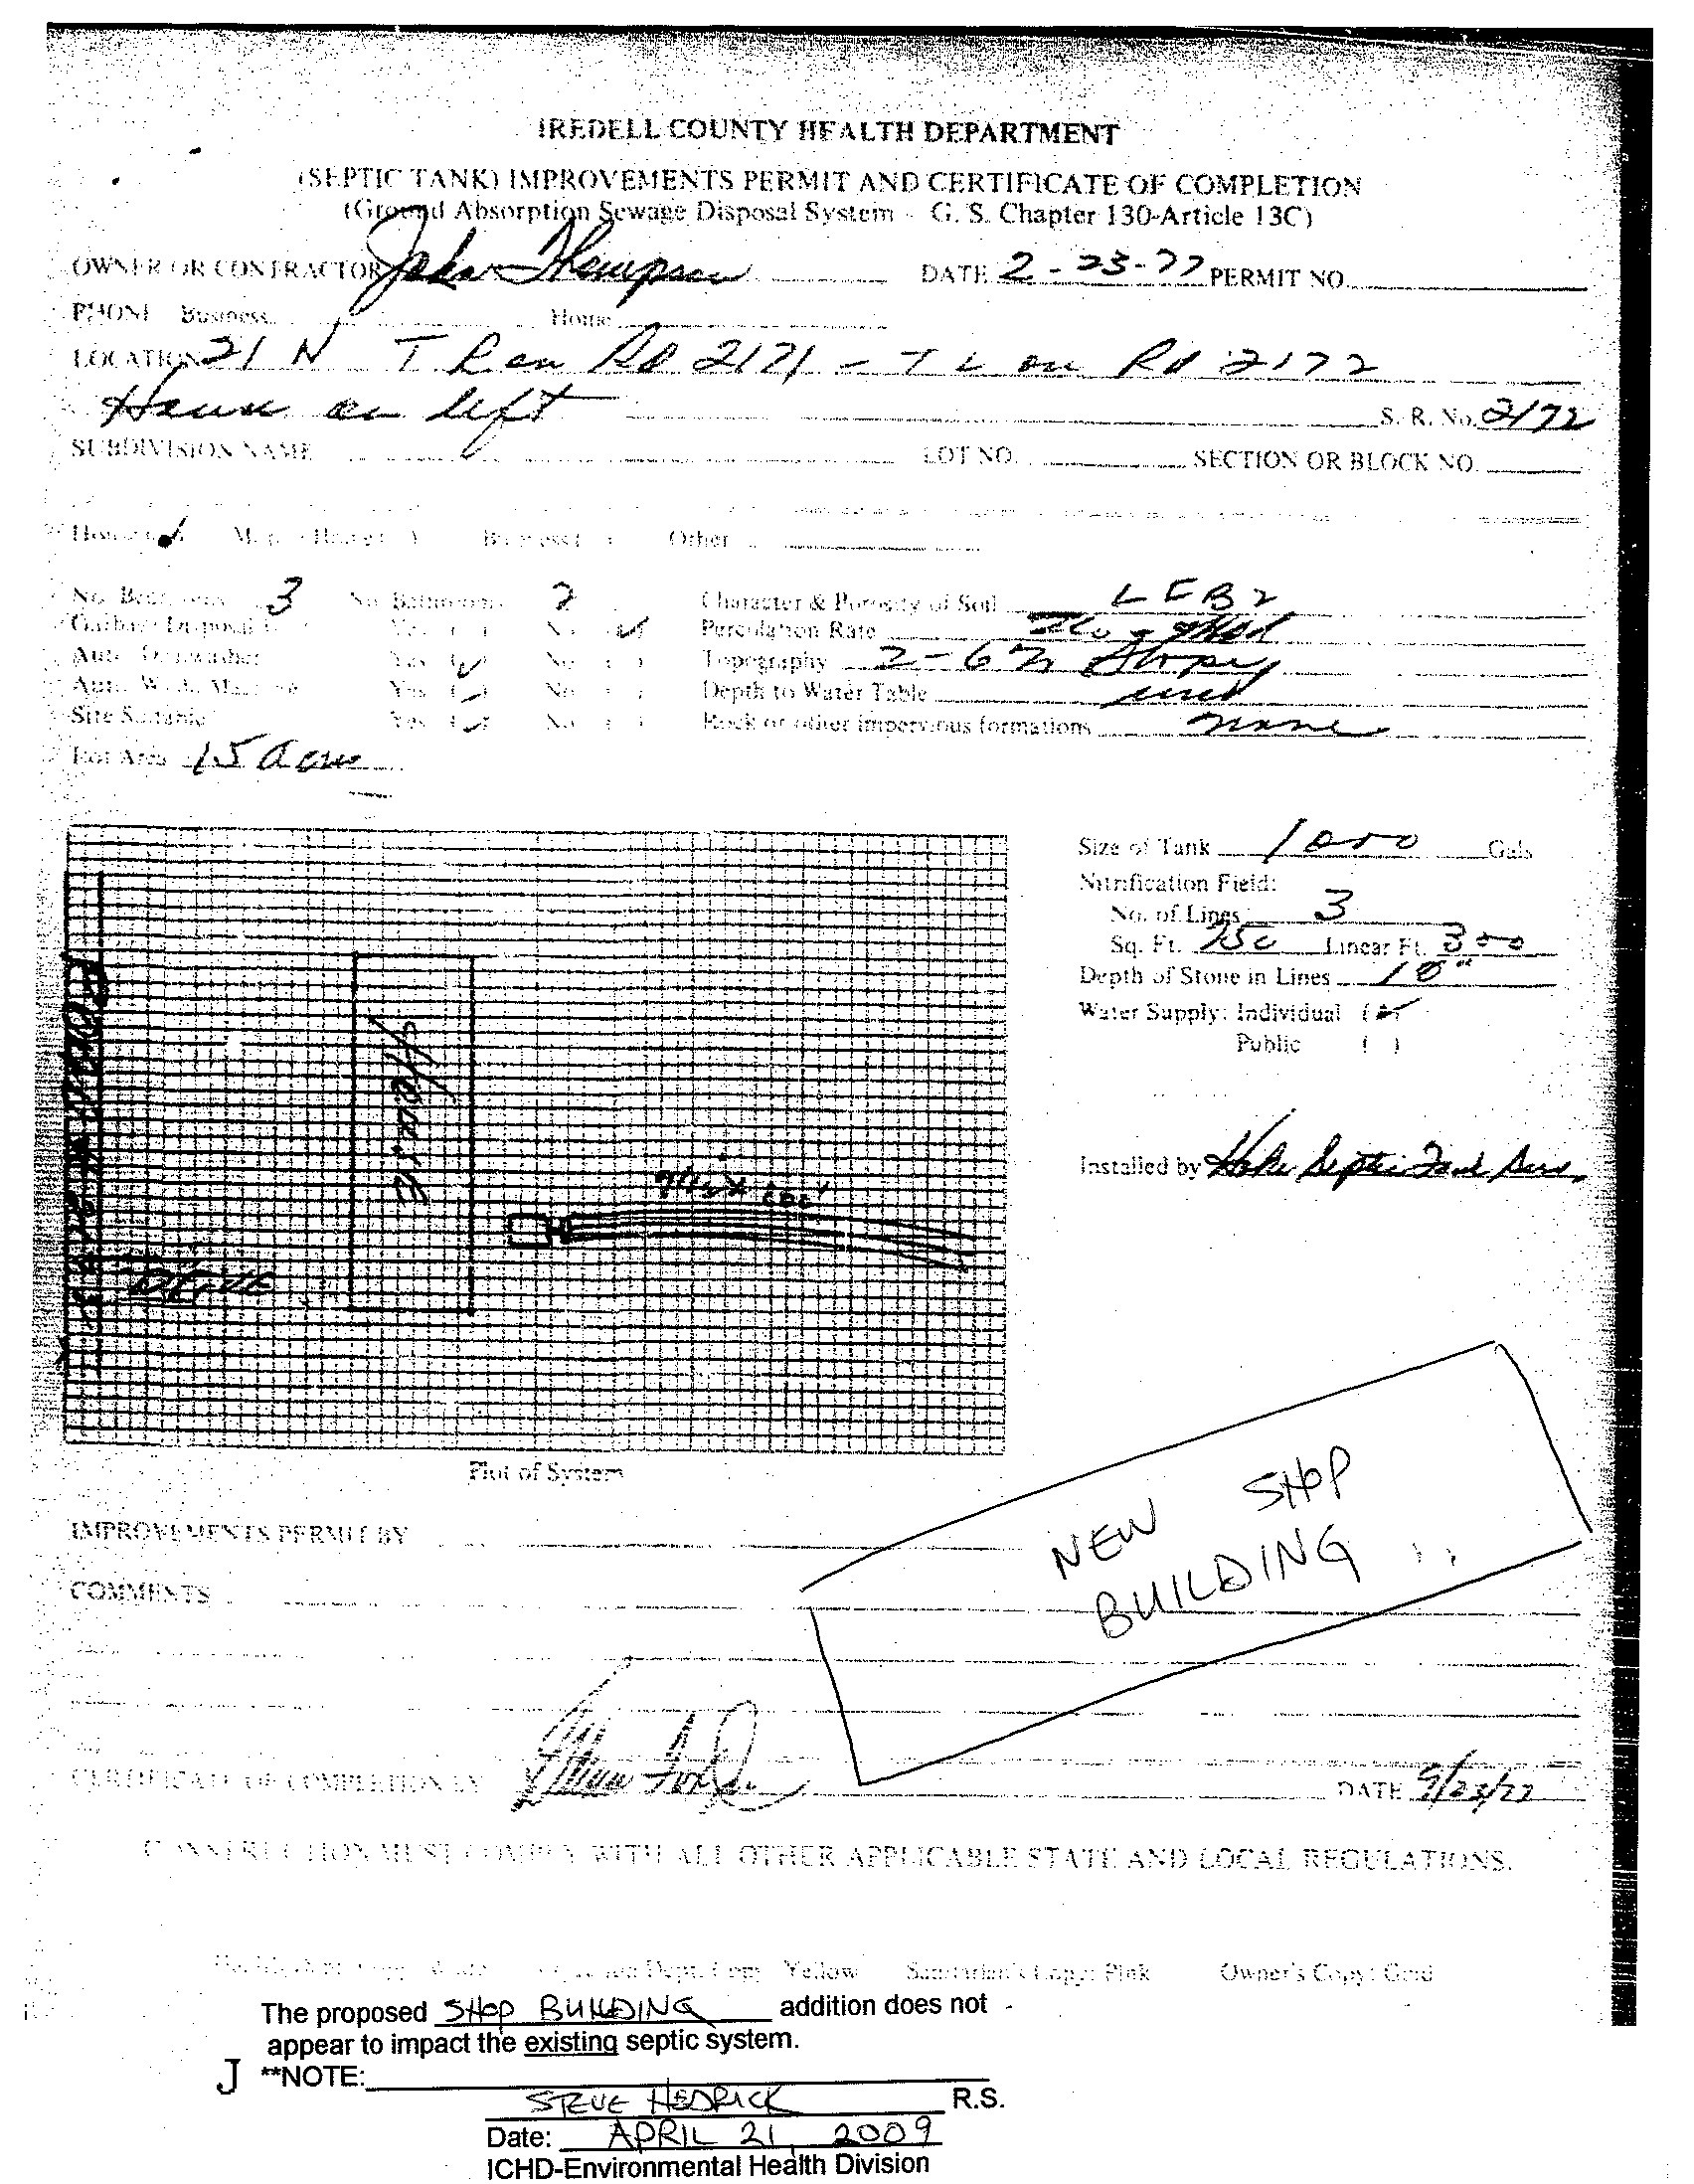 IREDELL COUNTY HEALTH DEPARTMENT
(SEPTIC TANK) IMPROVEMENTS PERMIT AND CERTIFICATE OF COMPLETION
(Ground Absorption Sewage Disposal System - G. S. Chapter 130-Article 13C)
OWNER OR CONTRACTOR John Thompson DATE 2-23-77 PERMIT NO.
PHONE Business Home
LOCATION 21 N T R on Rd 2171 - T L on Rd 2172
House on left S. R. No. 2172
SUBDIVISION NAME LOT NO. SECTION OR BLOCK NO.
House Business ( ) Other
No. Bedrooms 3 No. Bathrooms 2 Character & Porosity of Soil
Garbage Disposal Yes ( ) No (✓) Percolation Rate
Auto. Dishwasher Yes (✓) No ( ) Topography 2-6% Slope
Auto. Wash. Machine Yes (✓) No ( ) Depth to Water Table
Site Suitable Yes (✓) No ( ) Rock or other impervious formations none
Lot Area 15 acres
Size of Tank 1000 Gals
Nitrification Field:
No. of Lines 3
Sq. Ft. Linear Ft. 300
Depth of Stone in Lines
Water Supply: Individual (✓)
Public ( )
House
DRIVE
Installed by Septic Tank Serv.
Plot of System
NEW SHOP
BUILDING
IMPROVEMENTS PERMIT BY
COMMENTS
CERTIFICATE OF COMPLETION BY DATE 9/23/77
CONSTRUCTION MUST COMPLY WITH ALL OTHER APPLICABLE STATE AND LOCAL REGULATIONS.
Dept. Copy Yellow Sanitarian's Copy: Pink Owner's Copy: Gold
The proposed SHOP BUILDING addition does not
appear to impact the existing septic system.
J **NOTE:
STEVE HEDRICK R.S.
Date: APRIL 21, 2009
ICHD-Environmental Health Division